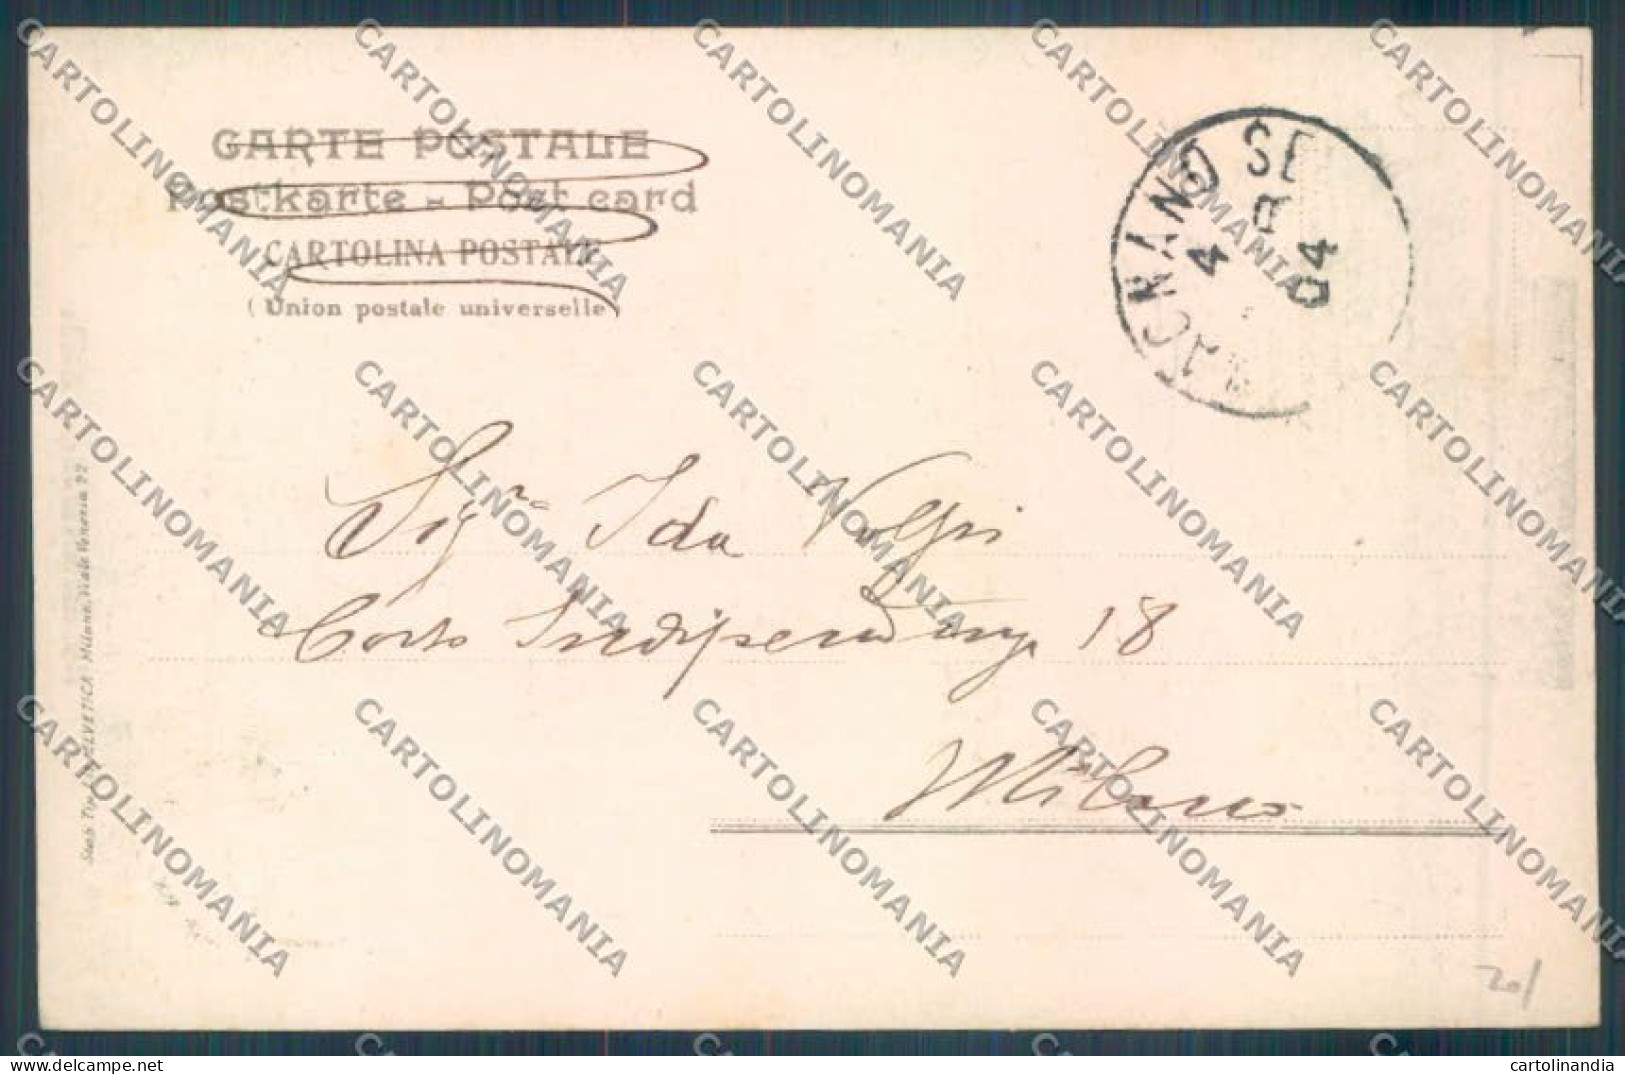 CARTE POSTALE
Postkarte - Post card
CARTOLINA POSTALE
(Union postale universelle)
4
04
Sig.ra Ida Volpi
Corso Indipendenza 18
Milano
HELVETICA Milano, Viale Venezia 22
201
CARTOLINOMANIA
delcampe.net
cartolinandia